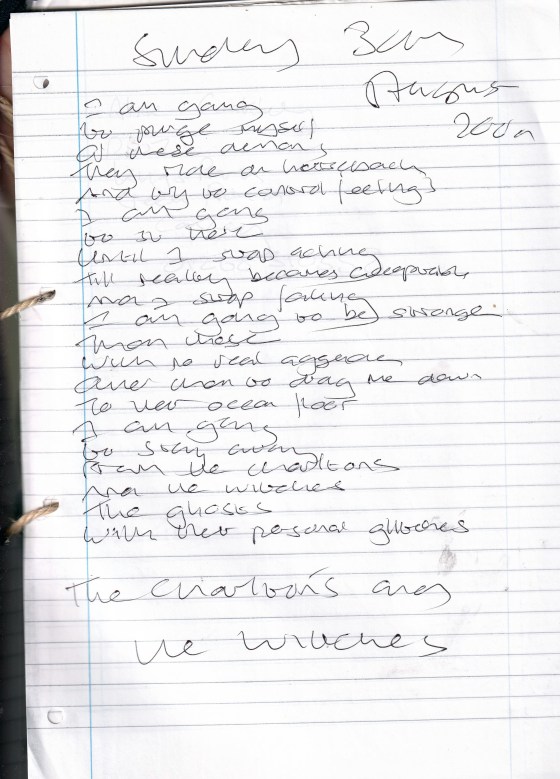 Sunday 3rd
August
200
I am going
to purge myself
of these demons
They ride on horseback
And try to control feelings
I am going
to sit here
Until I stop aching
till reality becomes acceptable
And I stop faking
I am going to be stronger
Than these
With no real agenda
Other than to drag me down
To their ocean floor
I am going
to stay away
From the charlatans
And the witches
The ghosts
With their personal glitches
The Charlatans and
the witches